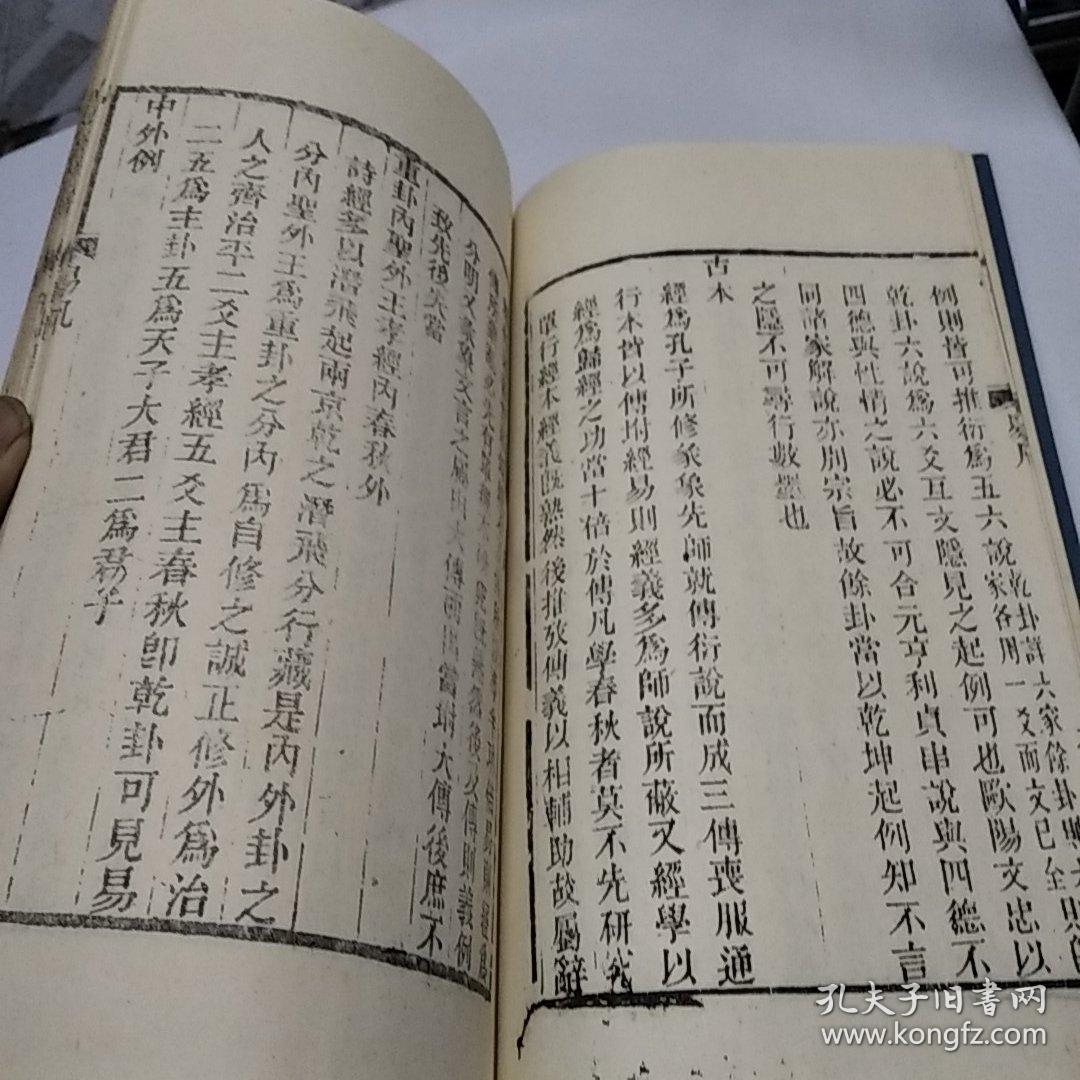 例則皆可推衍爲五六說
乾卦詳六家餘卦
家各用一爻而文已全
乾卦六說爲六爻互文隱見之起例可也歐陽文忠以
四德與性情之說必不可合元亨利貞串說與四德不
同諸家解說亦別宗旨故餘卦當以乾坤起例知不言
之隱不可尋行數墨也
古本
經爲孔子所修彖象先師就傳衍說而成三傳喪服通
行本皆以傳坿經易則經義多爲師說所蔽又經學以
經爲歸經之功當十倍於傳凡學春秋者莫不先研究
單行經本經義旣熟然後推攷傳義以相輔助故屬辭
分明又彖象文言之屬由大傳而出當坿大傳後庶不
致先後失當
重卦內聖外王孝經內春秋外
詩經多以潛飛起兩京乾之潛飛分行藏是內外卦之
分內聖外王爲重卦之分內爲自修之誠正修外爲治
人之齊治平二爻主孝經五爻主春秋卽乾卦可見易
二五爲主卦五爲天子大君二爲君子
中外例
孔夫子旧书网
www.kongfz.com